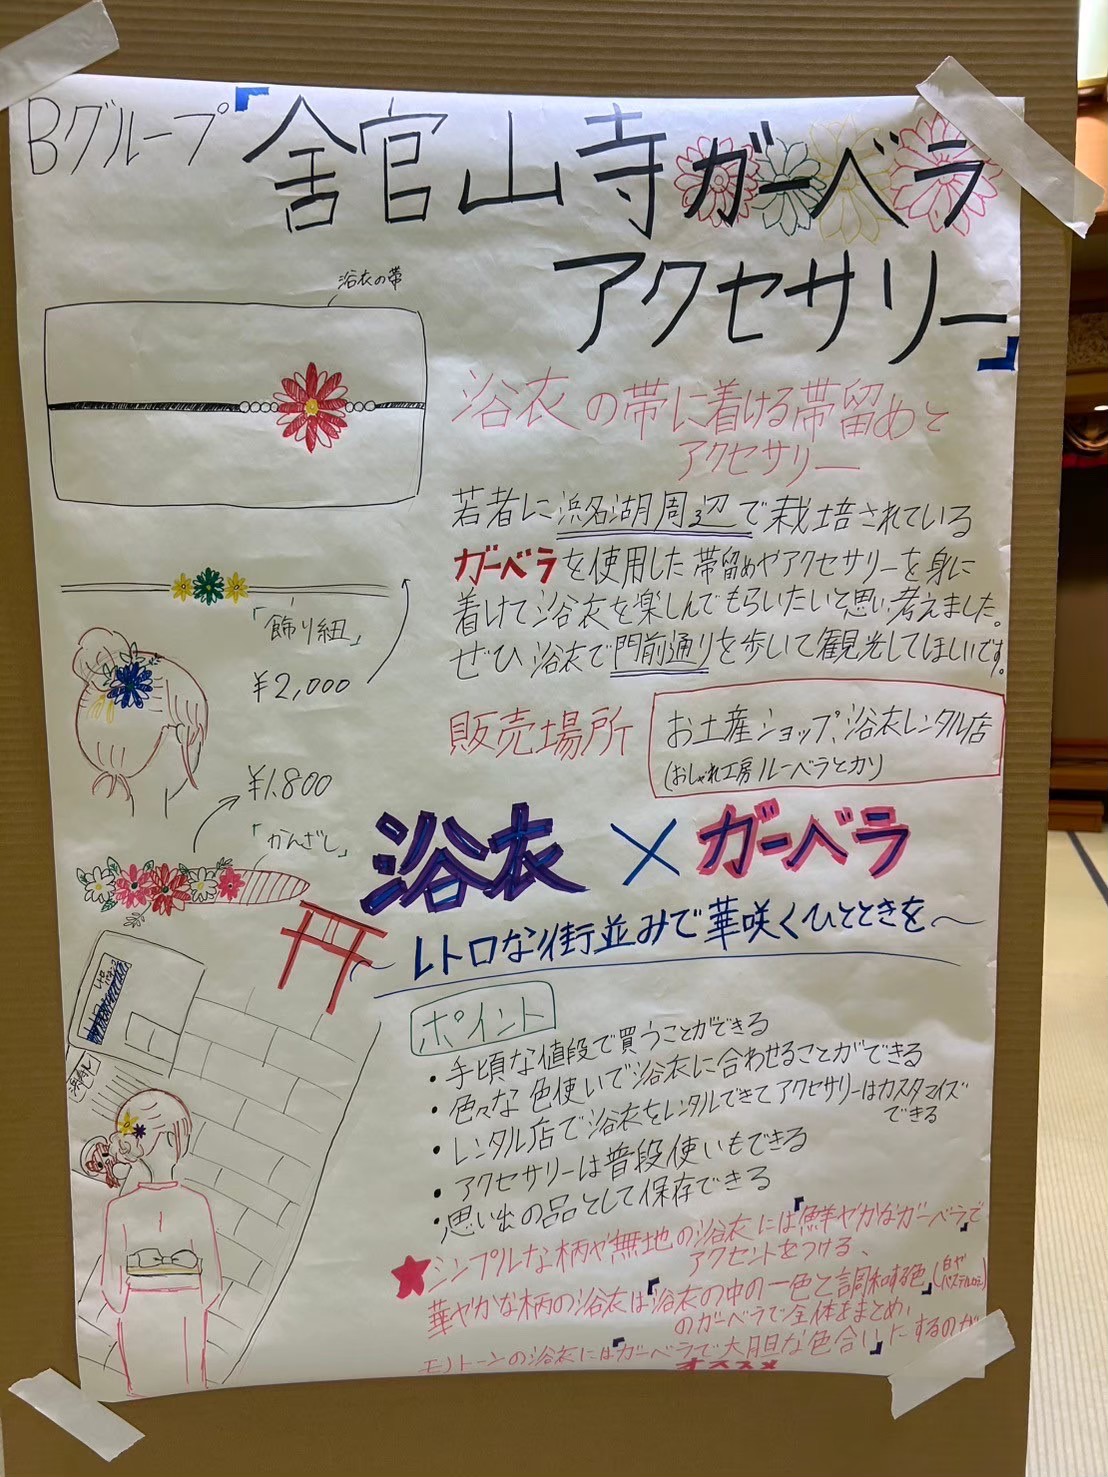 Bグループ
「舘山寺ガーベラ
アクセサリー」
浴衣の帯
浴衣の帯に着ける帯留めと
アクセサリー
若者に浜名湖周辺で栽培されている
ガーベラを使用した帯留めやアクセサリーを身に
着けて浴衣を楽しんでもらいたいと思い考えました。
ぜひ浴衣で門前通りを歩いて観光してほしいです。
「飾り紐」
¥2,000
販売場所
お土産ショップ、浴衣レンタル店
(おしゃれ工房ルーベラとカリ
¥1.800
「かんざし」
浴衣×ガーベラ
〜レトロな街並みで華咲くひとときを〜
レトロ
ポイント
・手頃な値段で買うことができる
・色々な色使いで浴衣に合わせることができる
・レンタル店で浴衣をレンタルできてアクセサリーはカスタマイズ
できる
・アクセサリーは普段使いもできる
・思い出の品として保存できる
★シンプルな柄や無地の浴衣には「鮮やかなガーベラ」で
アクセントをつける、
華やかな柄の浴衣は「浴衣の中の一色と調和する色」(白や
パステルカラー)
のガーベラで全体をまとめ、
モノトーンの浴衣には「ガーベラで大胆な色合い」にするのが
オススメ